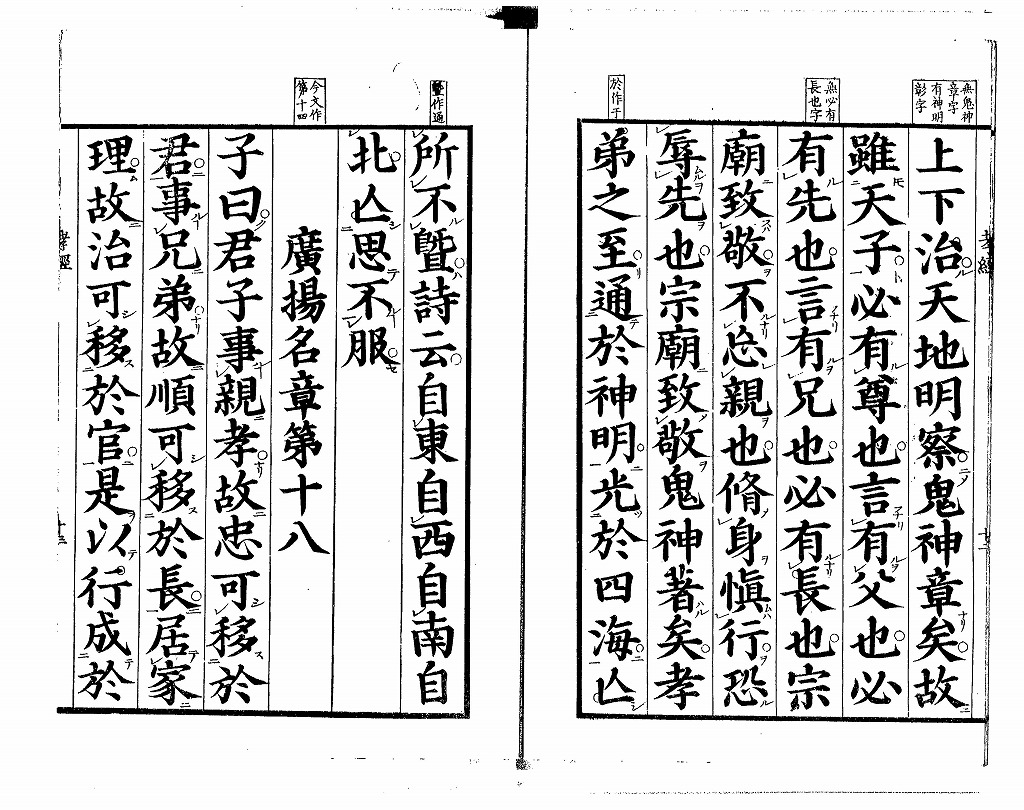 無鬼神
章字
有神明
彰字
無必有
長也字
於作于
上下治天地明察鬼神章矣故
雖天子必有尊也言有父也必
有先也言有兄也必有長也宗
廟致敬不忘親也脩身愼行恐
辱先也宗廟致敬鬼神著矣孝
弟之至通於神明光於四海亾
曁作通
今文作
第十四
所不曁詩云自東自西自南自
北亾思不服
廣揚名章第十八
子曰君子事親孝故忠可移於
君事兄弟故順可移於長居家
理故治可移於官是以行成於
孝經